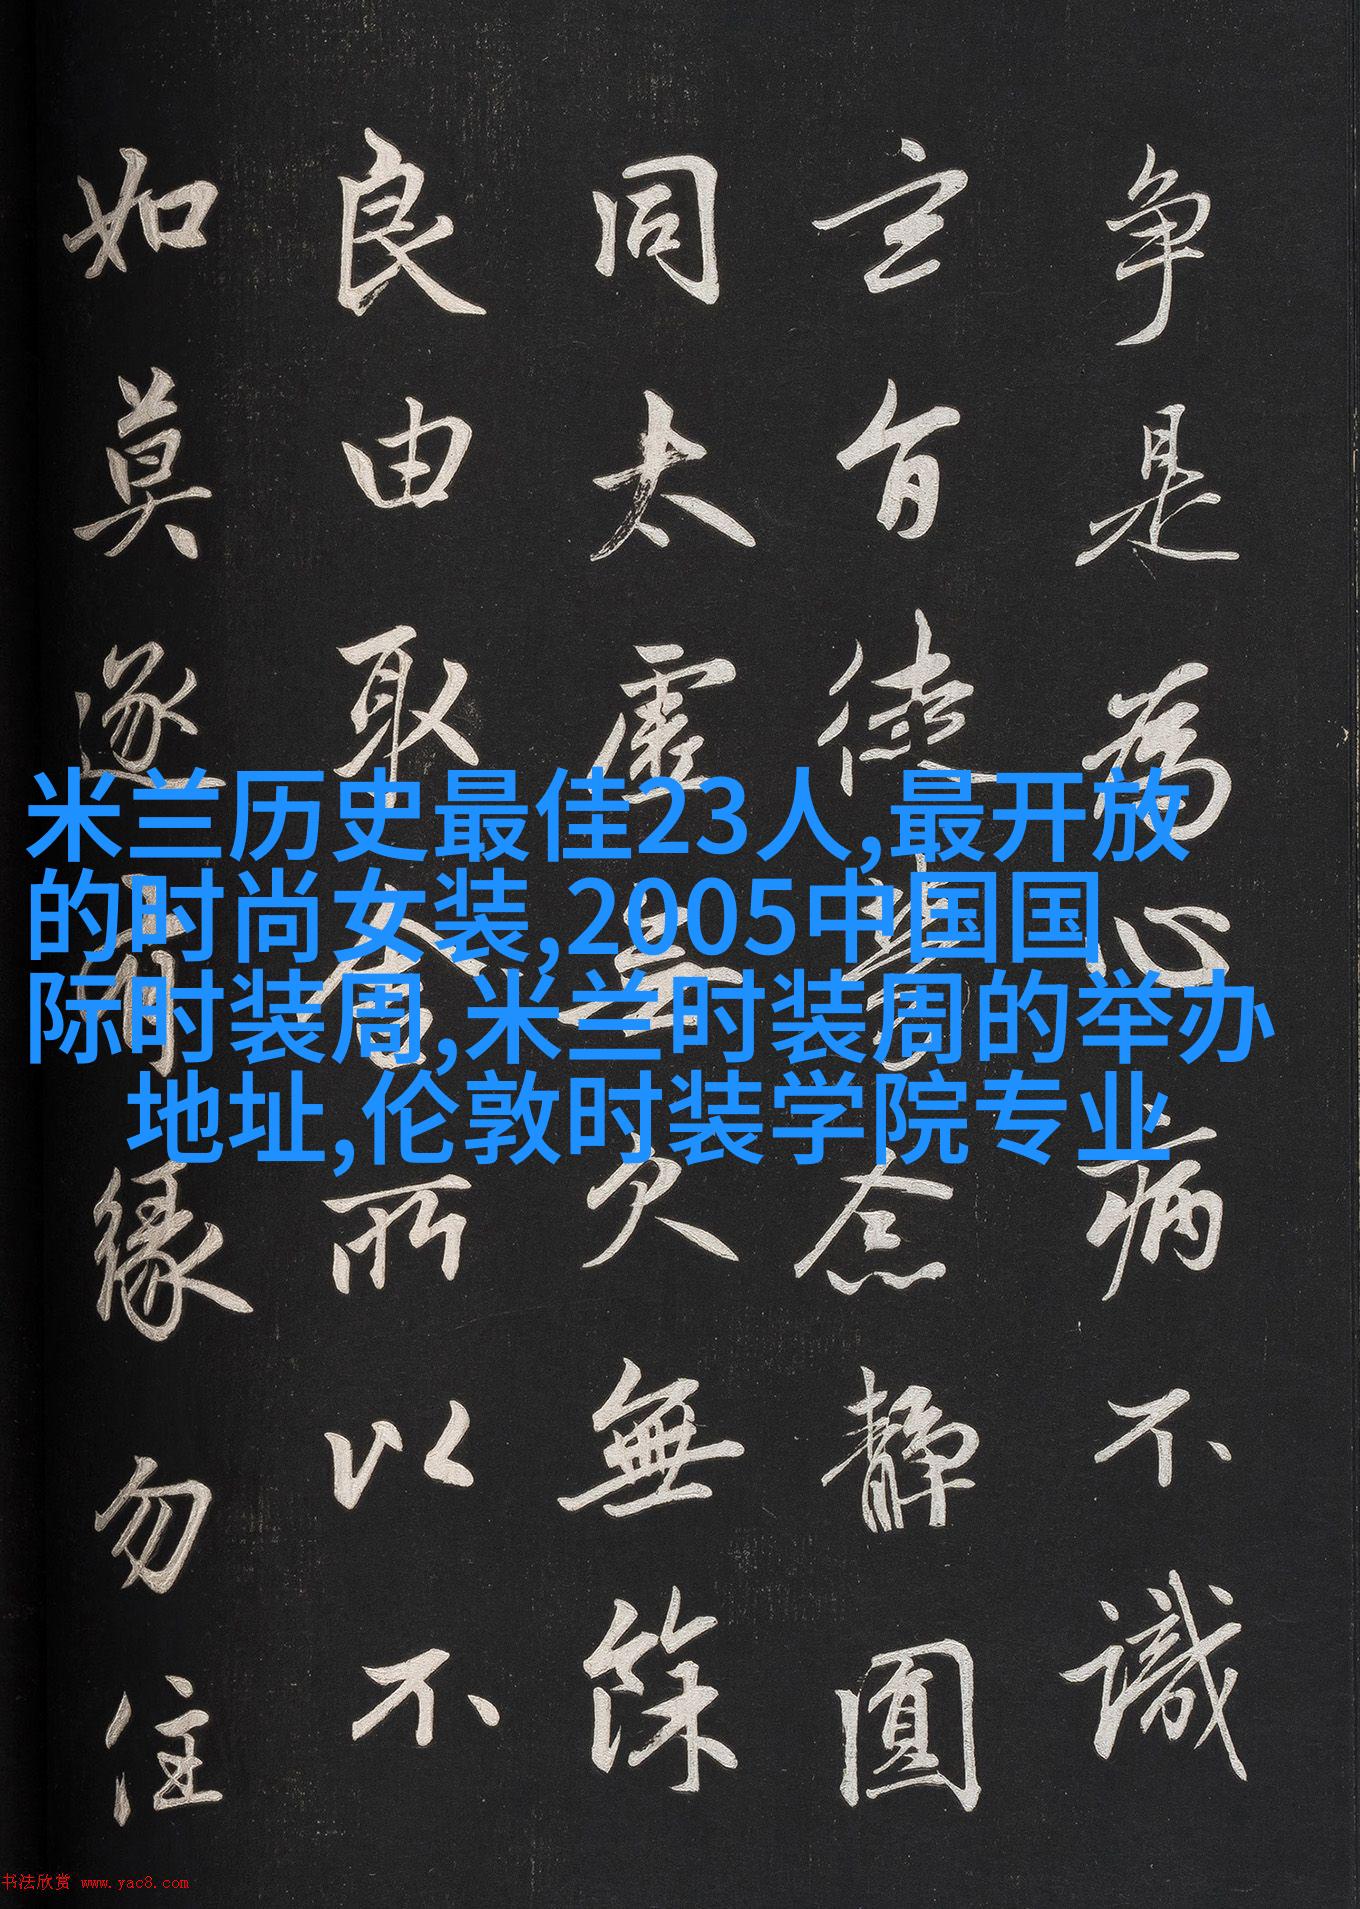 争是為心病不識
玄旨徒勞念靜圓
同太虛無欠無餘
良由取舍所以不
如莫逐有緣勿住
米兰历史最佳23人,最开放
的时尚女装,2005中国国
际时装周,米兰时装周的举办
地址,伦敦时装学院专业
书法欣赏 www.yac8.com